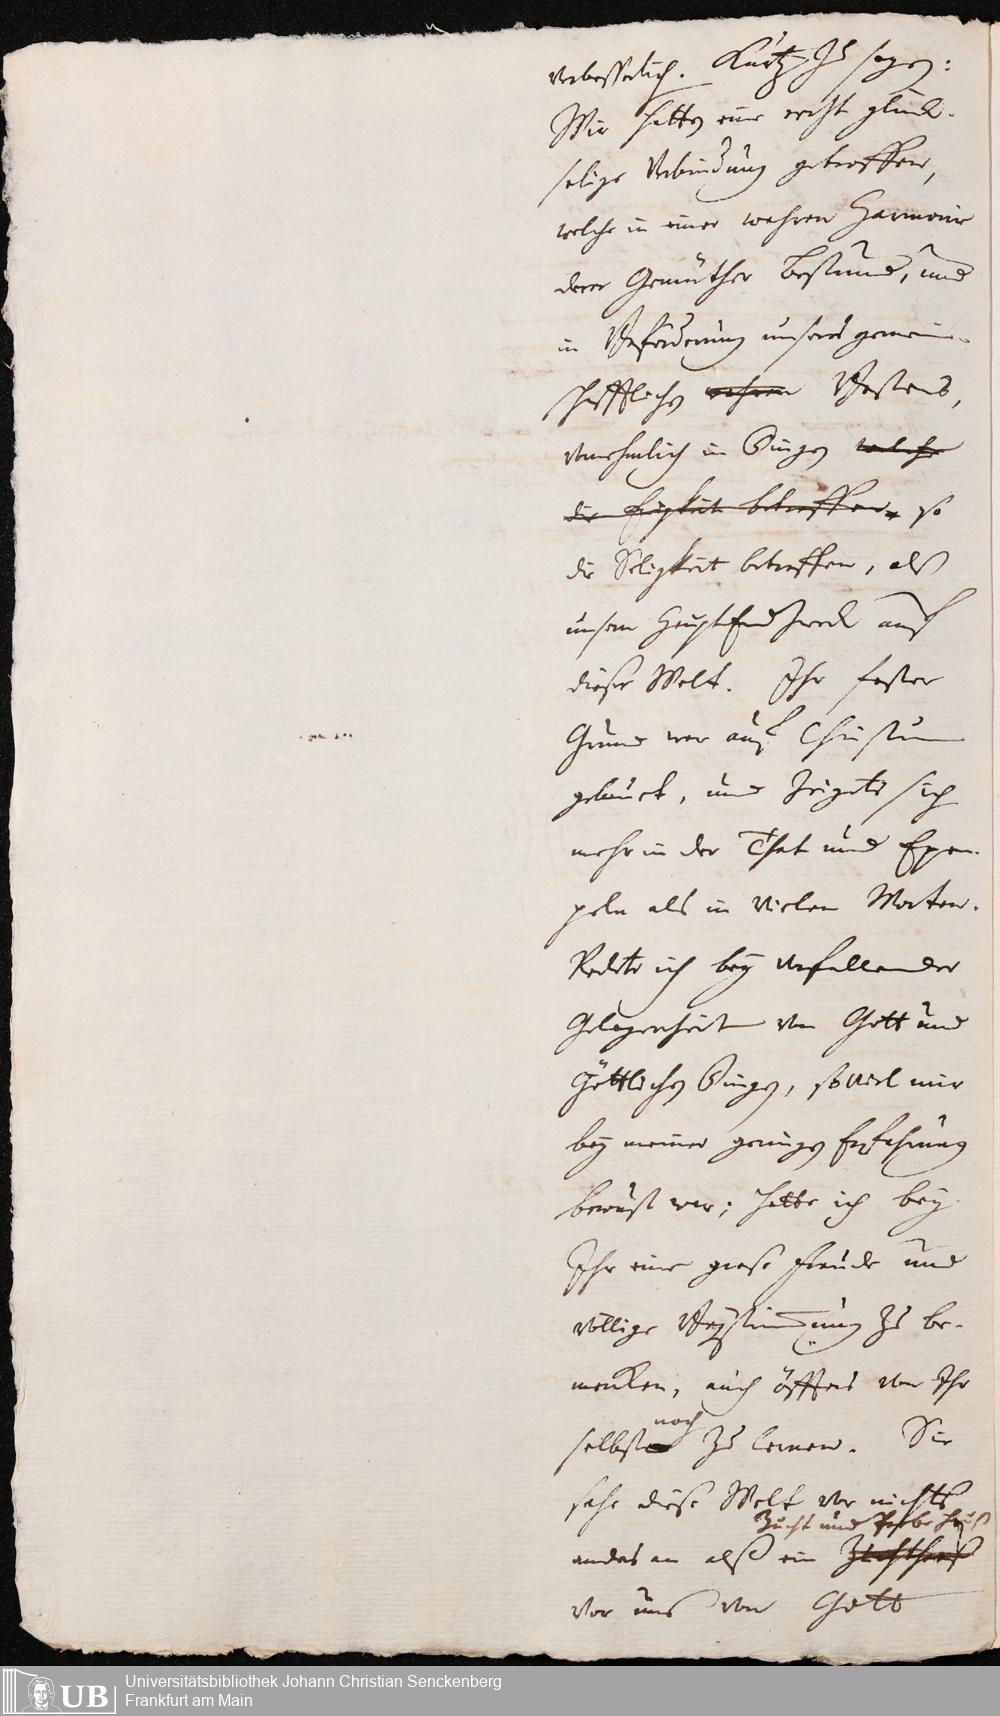 verbesserlich. Kurtz zu sagen:
Wir hatten eine recht glück-
selige Verbindung getroffen,
welche in einer wahren Harmonie
derer Gemüther bestund, und
in Beförderung unsers gemein-
schafftlichen wahren Bestens,
vornehmlich in Dingen welche
die Ewigkeit betreffen, so
die Seligkeit betreffen, alß
unsern Haupt Endzweck auf
dieser Welt. Ihr fester
Grund war auf Christum
gebauet, und zeigete sich
mehr in der That und Exem-
peln als in vielen Worten.
Redete ich bey vorfallender
Gelegenheit von Gott und
Göttlichen Dingen, soviel mir
bey meiner geringen Erfahrung
bewust war; hatte ich bey
Ihr eine große Freude und
völlige Beystimmung zu be-
mercken, auch öffters von Ihr
selbst noch zu lernen. Sie
sahe diese Welt vor nichts
Zucht und Probe Hauß
anders an alß ein Zuchthauß
vor uns von Gott
Universitätsbibliothek Johann Christian Senckenberg
Frankfurt am Main
UB